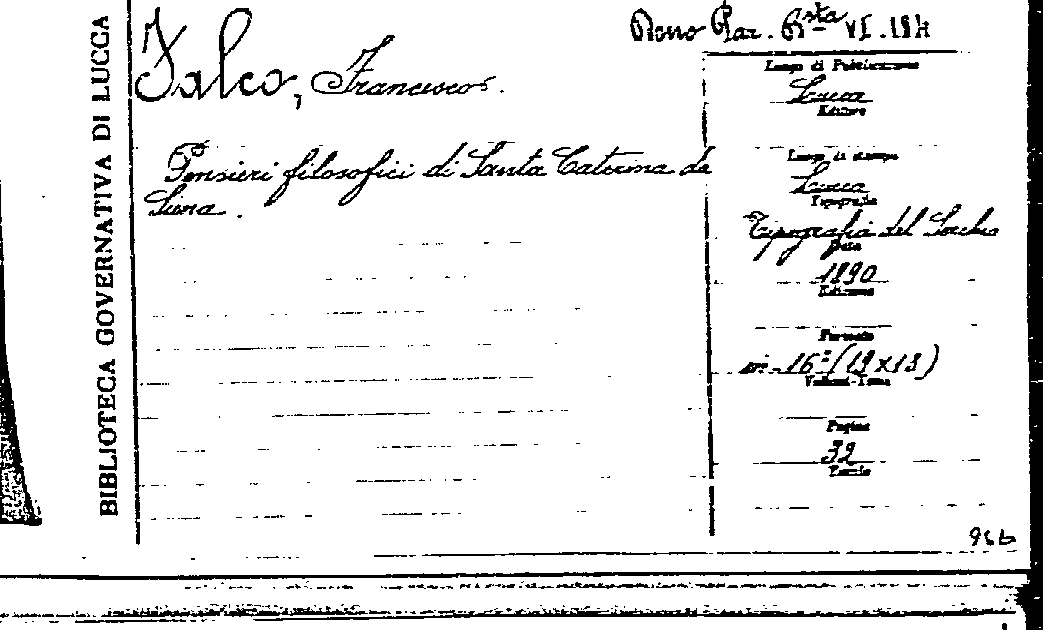 BIBLIOTECA GOVERNATIVA DI LUCCA
Falco, Francesco.
Pensieri filosofici di Santa Caterina da
Siena.
Luogo di Pubblicazione
Lucca
Editore
Luogo di stampa
Lucca
Tipografia
Tipografia del Serchio
Data
1890
Edizione
Formato
in-16º (19x13)
Volumi-Tomo
Pagine
32